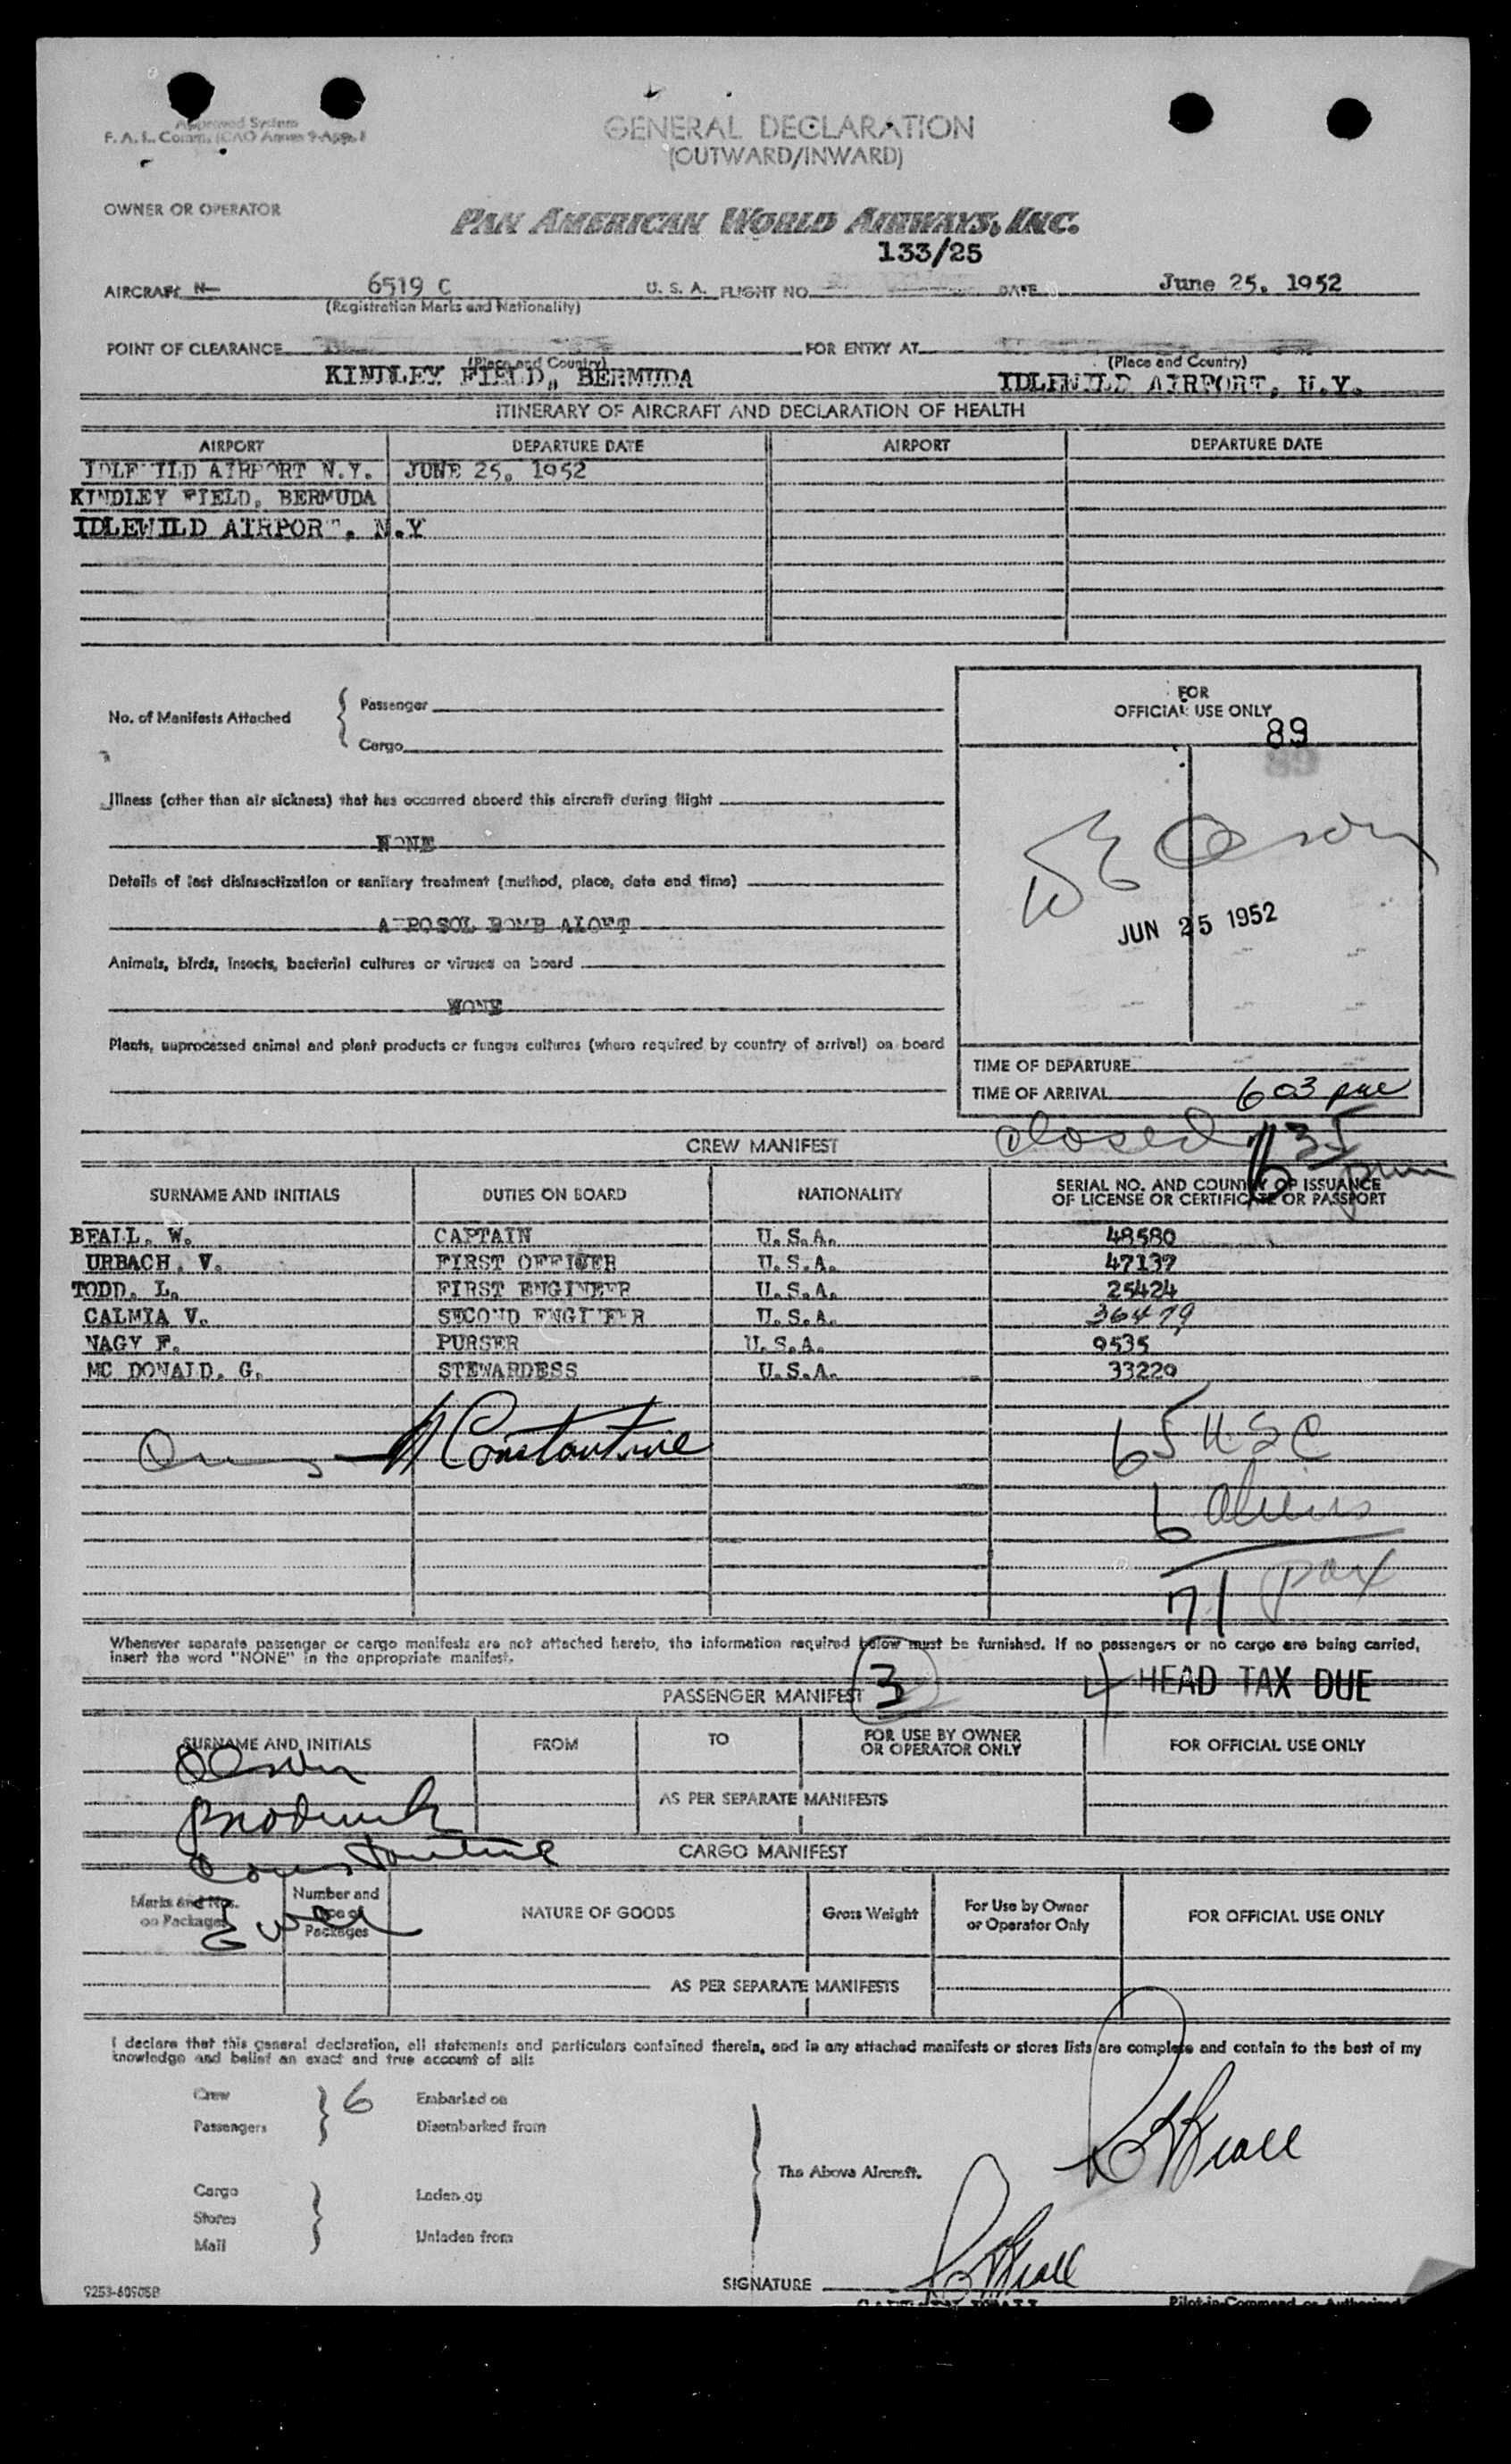 Approved System
F. A. L. Comm. (ICAO Annex 9-App. 1
GENERAL DECLARATION
(OUTWARD/INWARD)
OWNER OR OPERATOR
PAN AMERICAN WORLD AIRWAYS, INC.
133/25
AIRCRAFT N- 6519 C U. S. A. FLIGHT NO. DATE June 25, 1952
(Registration Marks and Nationality)
POINT OF CLEARANCE FOR ENTRY AT
(Place and Country) (Place and Country)
KINDLEY FIELD, BERMUDA IDLEWILD AIRPORT, N.Y.
ITINERARY OF AIRCRAFT AND DECLARATION OF HEALTH
AIRPORT DEPARTURE DATE AIRPORT DEPARTURE DATE
IDLEWILD AIRPORT N.Y. JUNE 25, 1952
KINDLEY FIELD, BERMUDA
IDLEWILD AIRPORT, N.Y
FOR
OFFICIAL USE ONLY
89
No. of Manifests Attached
Passenger
Cargo
Illness (other than air sickness) that has occurred aboard this aircraft during flight
NONE
Details of last disinsectization or sanitary treatment (method, place, date and time)
AEROSOL BOMB ALOFT
JUN 25 1952
Animals, birds, insects, bacterial cultures or viruses on board
NONE
Plants, unprocessed animal and plant products or fungus cultures (where required by country of arrival) on board
TIME OF DEPARTURE
TIME OF ARRIVAL 603 pm
closed 635 pm
CREW MANIFEST
SURNAME AND INITIALS DUTIES ON BOARD NATIONALITY SERIAL NO. AND COUNTRY OF ISSUANCE
OF LICENSE OR CERTIFICATE OR PASSPORT
BEALL. W. CAPTAIN U.S.A. 48580
URBACH. V. FIRST OFFICER U.S.A. 47137
TODD. L. FIRST ENGINEER U.S.A. 25424
CALMIA V. SECOND ENGINEER U.S.A. 36479
NAGY F. PURSER U.S.A. 9535
MC DONALD. G. STEWARDESS U.S.A. 33220
Constantine
65 USC
6 aliens
71 pax
Whenever separate passenger or cargo manifests are not attached hereto, the information required below must be furnished. If no passengers or no cargo are being carried,
insert the word "NONE" in the appropriate manifest.
PASSENGER MANIFEST 3 4 HEAD TAX DUE
SURNAME AND INITIALS FROM TO FOR USE BY OWNER
OR OPERATOR ONLY FOR OFFICIAL USE ONLY
Olson
AS PER SEPARATE MANIFESTS
Constantine
CARGO MANIFEST
Marks and Nos.
on Packages Number and
Type of
Packages NATURE OF GOODS Gross Weight For Use by Owner
or Operator Only FOR OFFICIAL USE ONLY
AS PER SEPARATE MANIFESTS
I declare that this general declaration, all statements and particulars contained therein, and in any attached manifests or stores lists are complete and contain to the best of my
knowledge and belief an exact and true account of all:
Crew 6 Embarked on
Passengers Disembarked from
The Above Aircraft.
Cargo Laden on
Stores
Mail Unladen from
Beall
SIGNATURE Beall
9253-60905B
CAPTAIN BEALL
Pilot-in-Command or Authorized